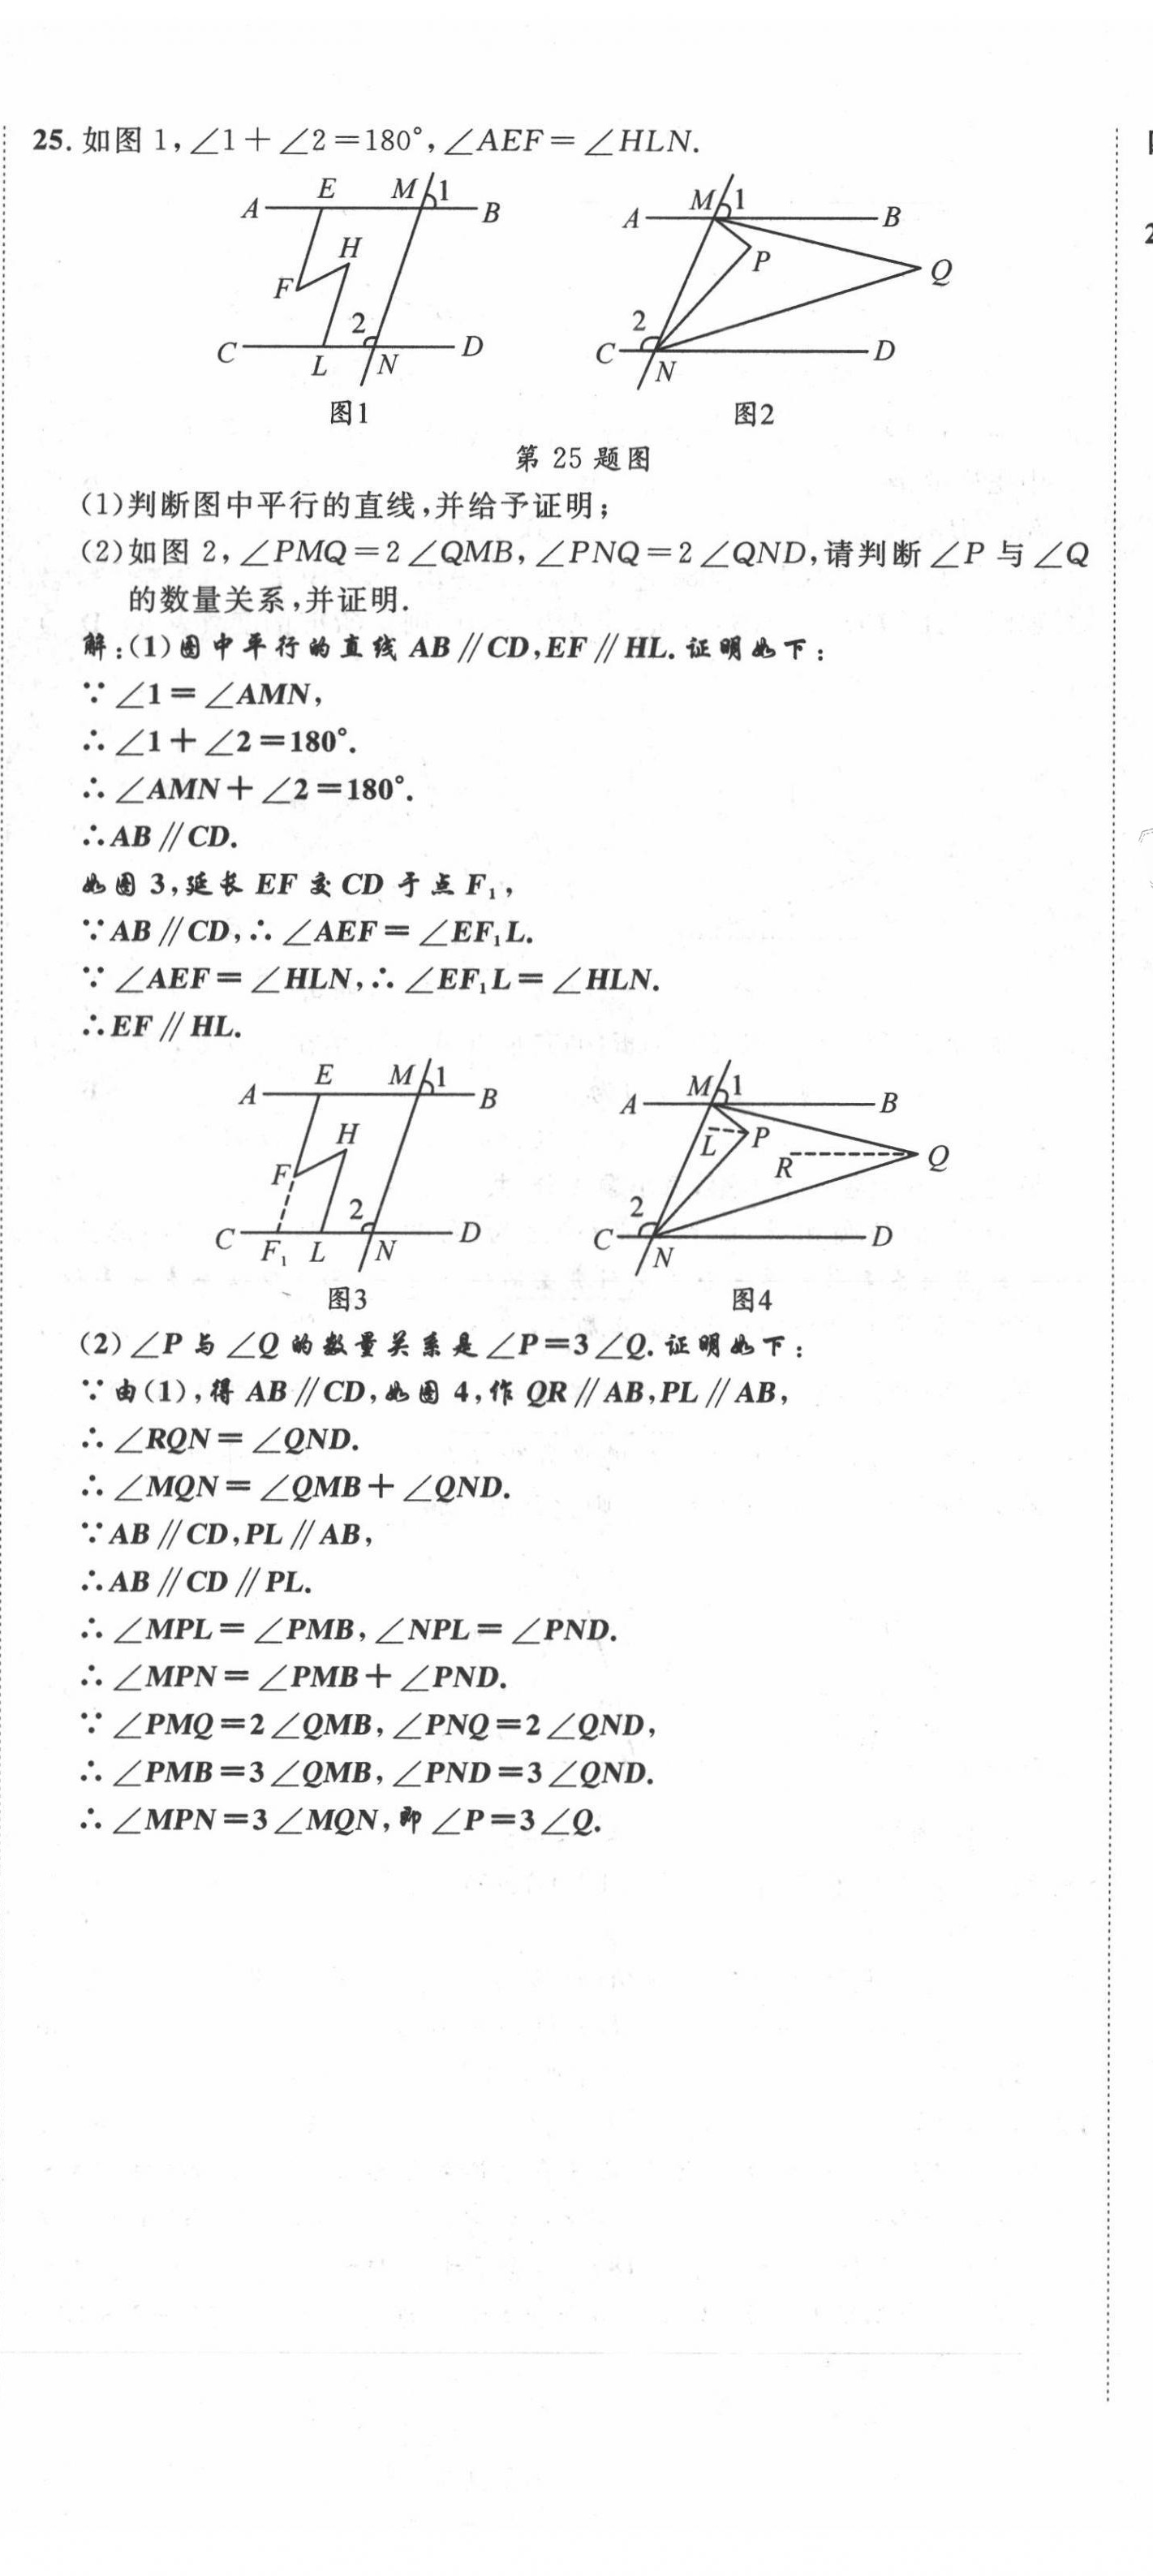 25. 如图 1,∠1+∠2=180°,∠AEF=∠HLN.
A E M 1 B
H
F
2
C L N D
图1
A M 1 B
P
Q
2
C N D
图2
第 25 题图
(1)判断图中平行的直线,并给予证明;
(2)如图 2,∠PMQ=2∠QMB,∠PNQ=2∠QND,请判断∠P 与∠Q
的数量关系,并证明.
解:(1)图中平行的直线 AB∥CD,EF∥HL. 证明如下:
∵∠1=∠AMN,
∴∠1+∠2=180°.
∴∠AMN+∠2=180°.
∴AB∥CD.
如图 3,延长 EF 交 CD 于点 F₁,
∵AB∥CD,∴∠AEF=∠EF₁L.
∵∠AEF=∠HLN,∴∠EF₁L=∠HLN.
∴EF∥HL.
A E M 1 B
H
F
2
C F₁ L N D
图3
A M 1 B
L P
R Q
2
C N D
图4
(2)∠P 与∠Q 的数量关系是∠P=3∠Q. 证明如下:
∵由(1),得 AB∥CD,如图 4,作 QR∥AB,PL∥AB,
∴∠RQN=∠QND.
∴∠MQN=∠QMB+∠QND.
∵AB∥CD,PL∥AB,
∴AB∥CD∥PL.
∴∠MPL=∠PMB,∠NPL=∠PND.
∴∠MPN=∠PMB+∠PND.
∵∠PMQ=2∠QMB,∠PNQ=2∠QND,
∴∠PMB=3∠QMB,∠PND=3∠QND.
∴∠MPN=3∠MQN,即∠P=3∠Q.